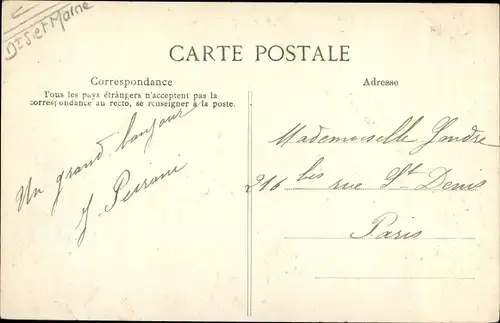 Dt S et Marne
CARTE POSTALE
Correspondance
Tous les pays étrangers n'acceptent pas la
correspondance au recto, se renseigner à la poste.
Un grand bonjour
Adresse
Mademoiselle
216 bis rue St Denis
Paris